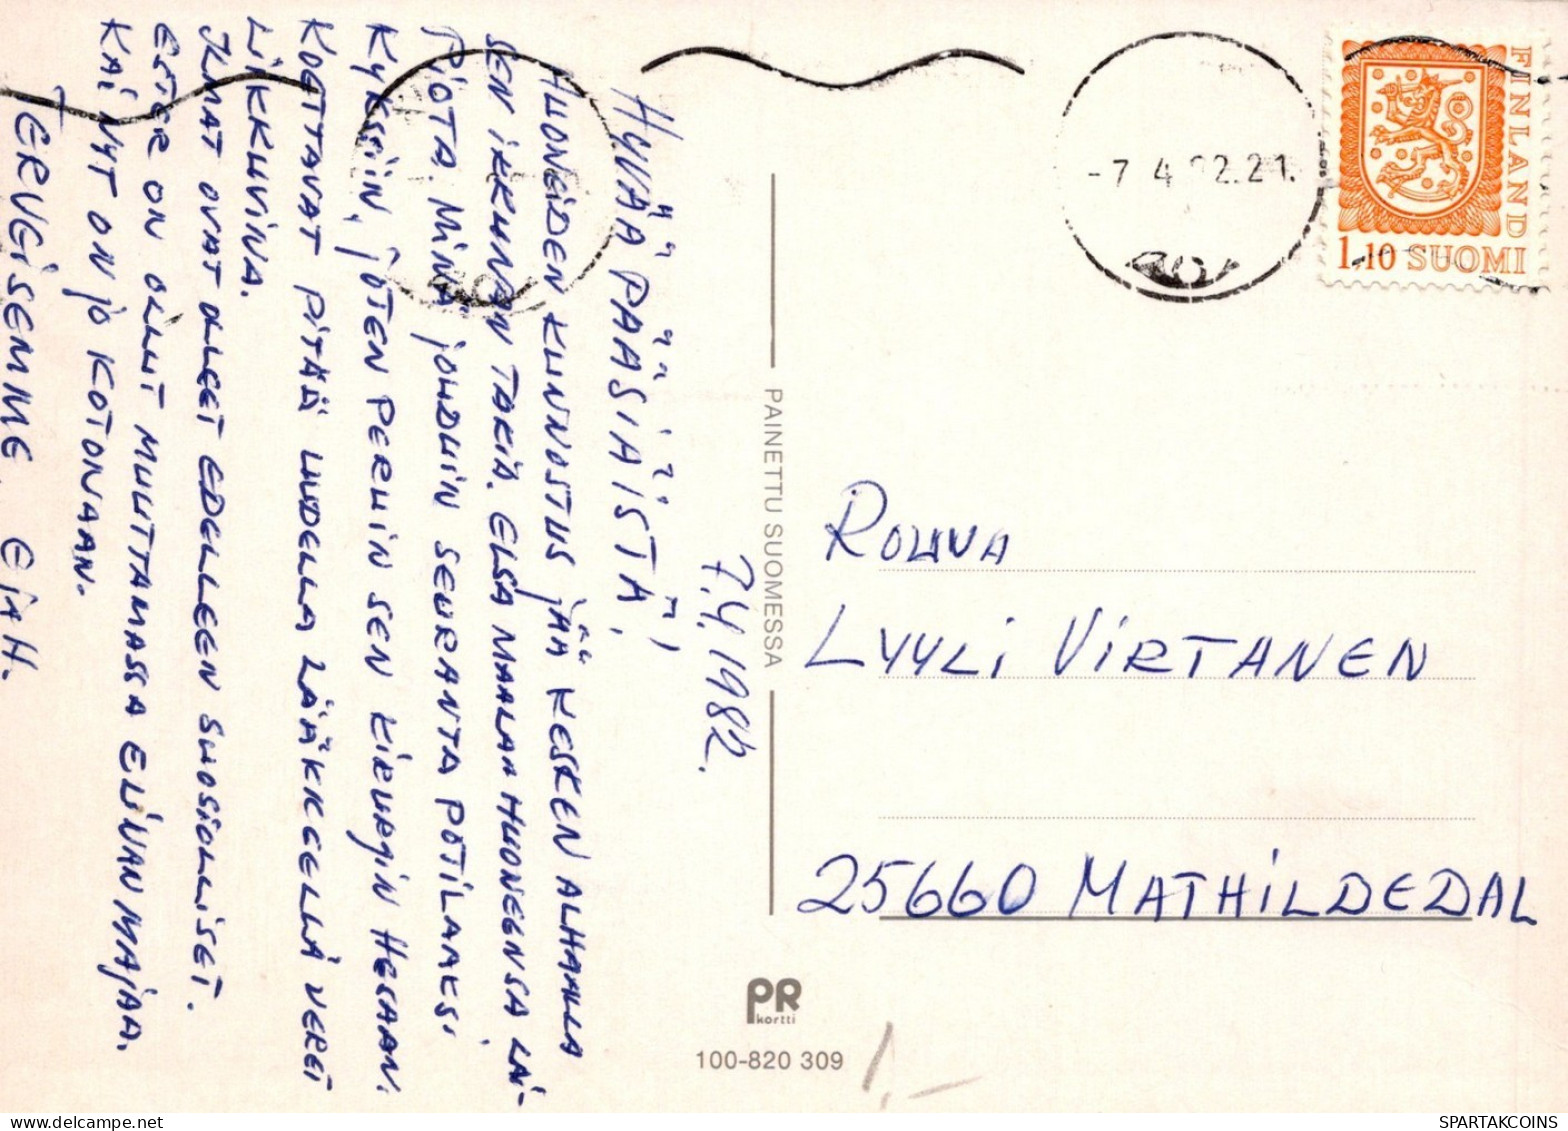 7.4.1982.
HYVÄÄ PÄÄSIÄISTÄ!
HUONEIDEN KUNNOSTUS JÄÄ KESKEN ALHAALLA
SEN IKKUNAN TAKIA. ELSA MAALAA HUONEENSA LAI-
PIOTA. MINÄ JOUDUIN SEURANTA POTILAAKSI
KYKSIIN, JOTEN PERUIN SEN KIRURGIN HESAAN.
KOETTAVAT PITÄÄ UUDELLA LÄÄKKEELLÄ VERET
LIKKUVINA.
ILMAT OVAT OLEET EDELLEEN SUOSIOLLISET.
ESTER ON OLLUT MUUTTAMASSA ELINAN MAJAA.
KAI NYT ON JO KOTONAAN.
TERVEISEMME. E JA H.
PAINETTU SUOMESSA
PR
kortti
100-820 309
-7.4.82.21.
FINLAND
1,10 SUOMI
ROUVA
LYYLI VIRTANEN
25660 MATHILDEDAL
1,-
SPARTAKCOINS